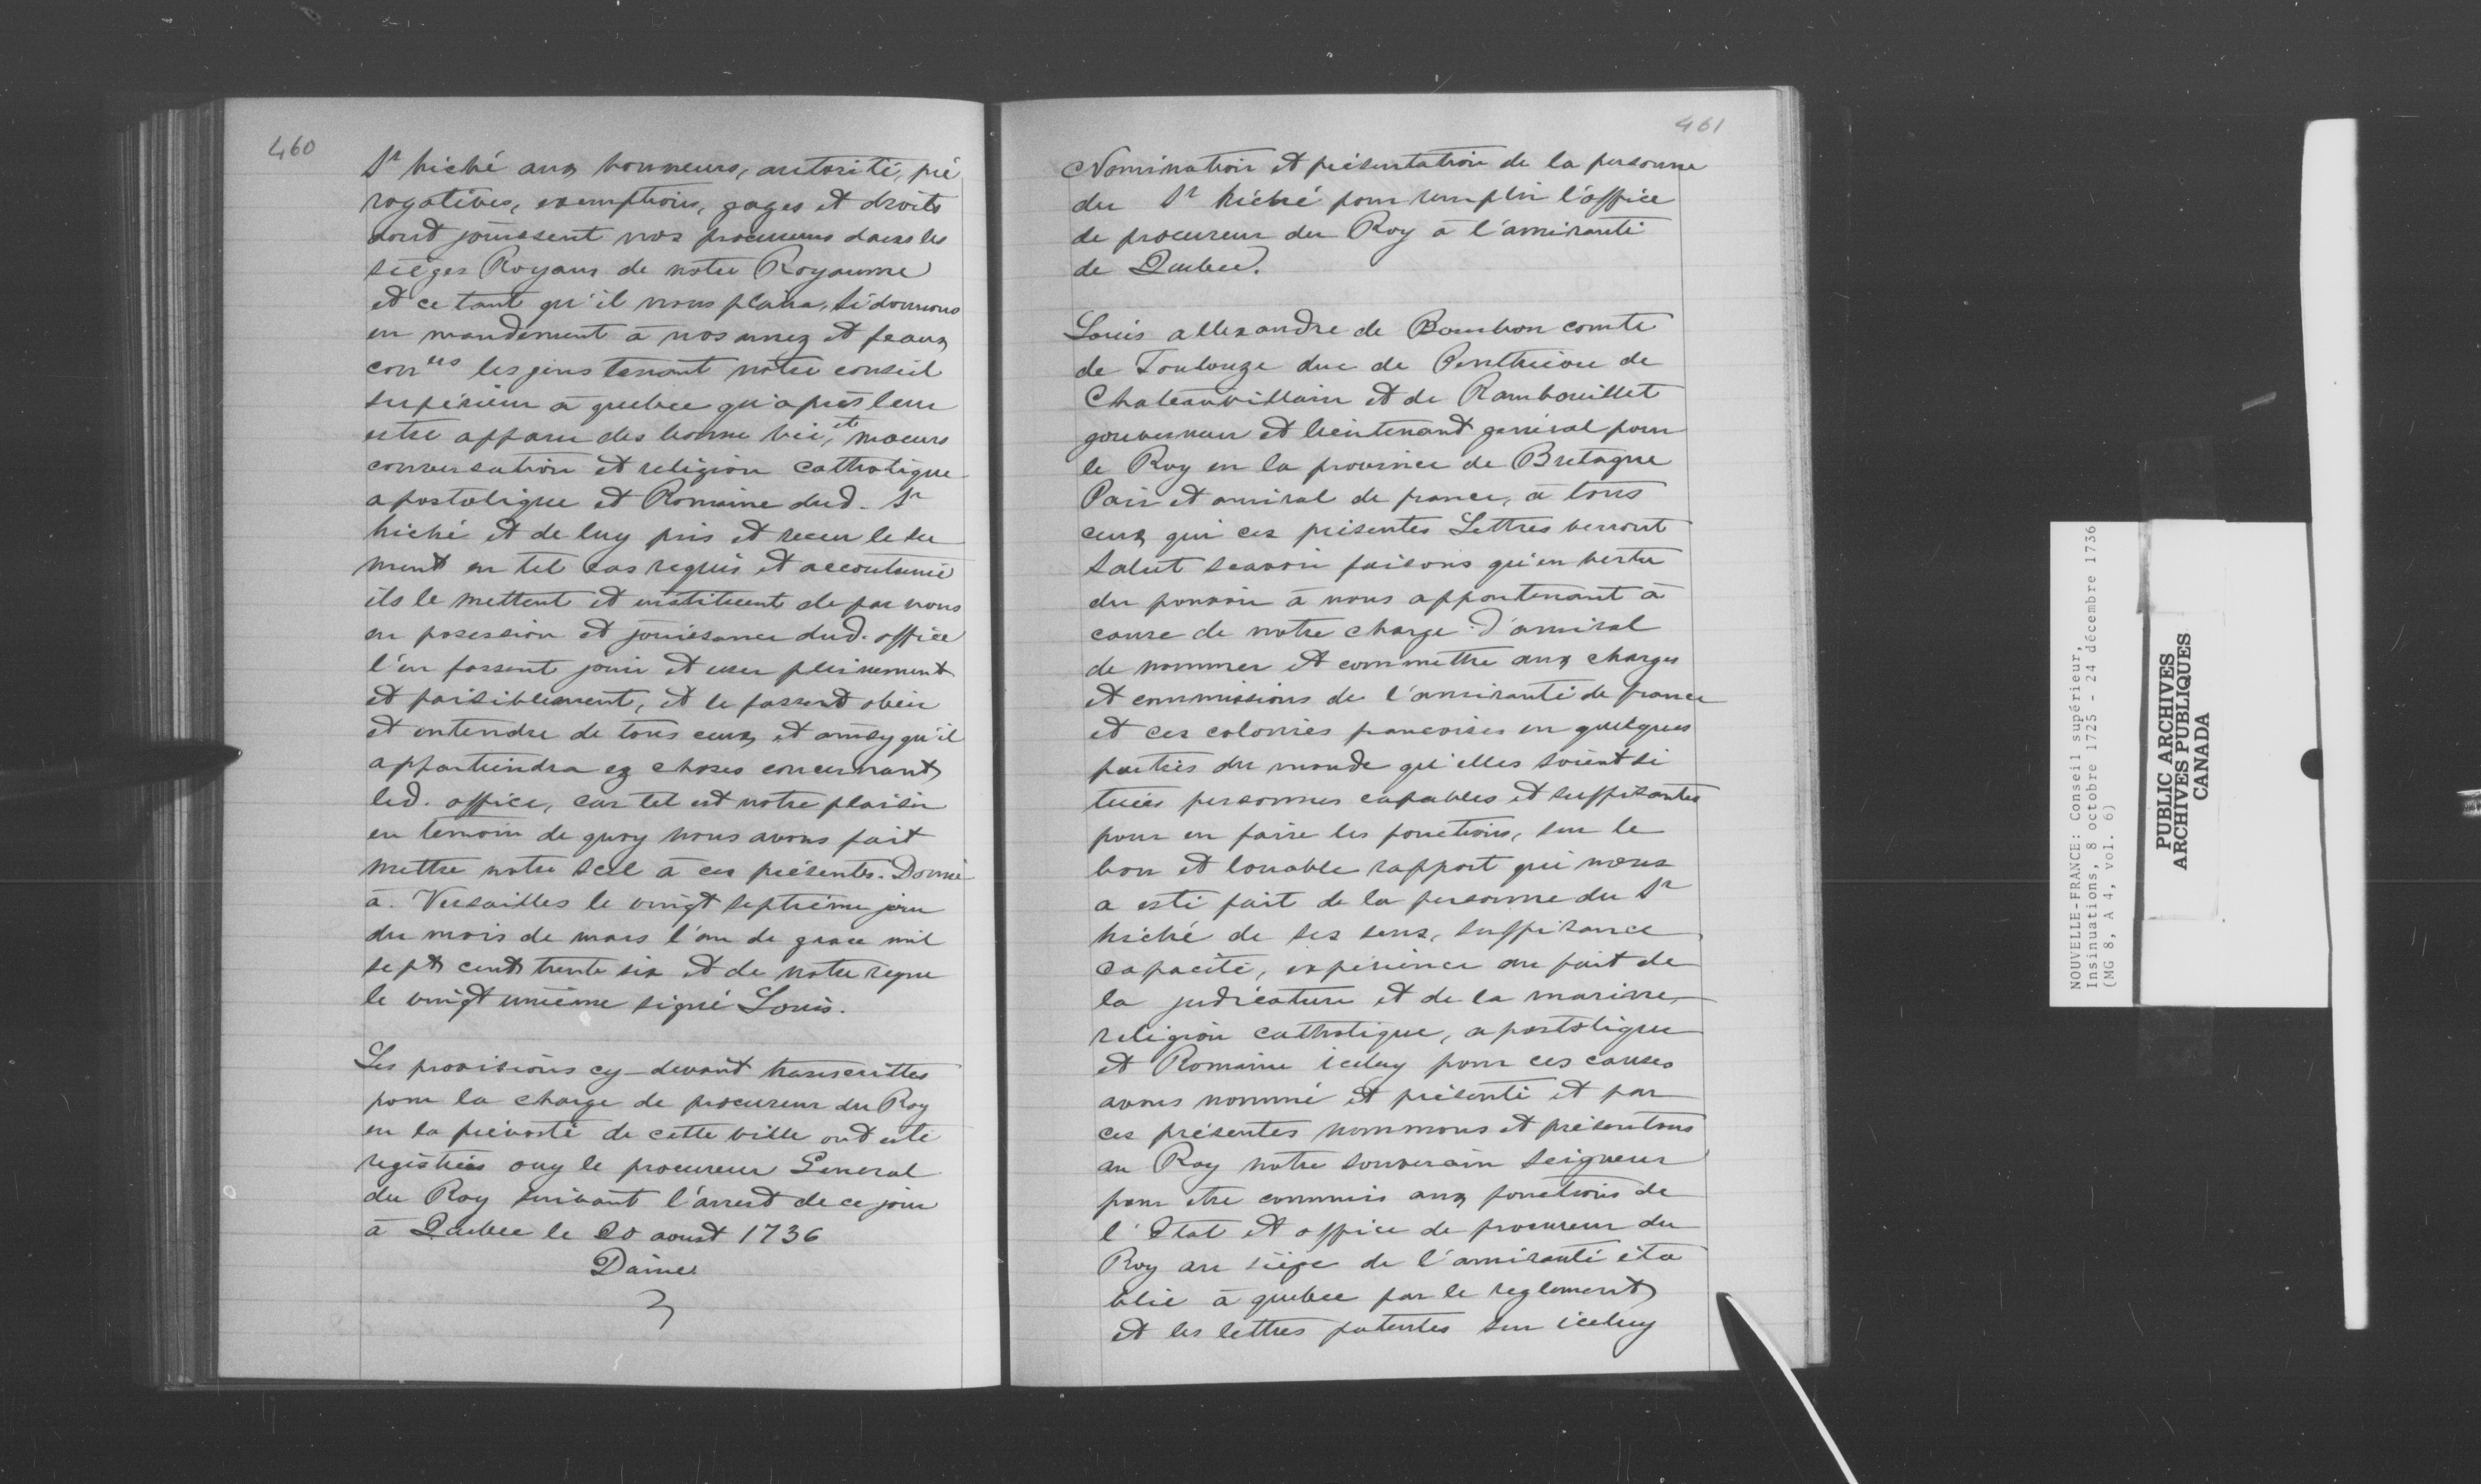 460
Sr hiché aux honneurs, autorité, pré
rogatives, exemptions, gages et droits
dont jouissent nos procureurs dans les
siéges Royaux de notre Royaume
et ce tant qu'il nous plaira, Si donnons
en mandement à nos amez et feaux
coners les gens tenant notre conseil
supérieur à quebec qu'après leur
estre apparu des bonne vie, et moeurs
conversation et religion catholique
apostolique et Romaine dud. Sr
hiché et de luy pris et receu le ser
ment en tel cas requis et accoutumé
ils le mettent et instituent de par nous
en posession et jouissance dud. office
l'en fassent jouir et user pleinement
et paisiblement, et le fassent obéir
et entendre de tous ceux et ainsy qu'il
appartiendra ez choses concernant
led. office, car tel est notre plaisir
en temoin de quoy nous avons fait
mettre notre scel à ces présentes. Donné
à Versailles le vingt septième jour
du mois de mars l'an de grace mil
sept cent trente six et de notre regne
le vingt unième signé Louis.
Les provisions cy-devant transcrittes
pour la charge de procureur du Roy
en la prévosté de cette ville ont esté
registrées ouy le procureur General
du Roy suivant l'arrest de ce jour
à Quebec le 20 aoust 1736
Daine
461
Nomination et présentation de la personne
du Sr hiché pour remplir l'office
de procureur du Roy à l'amirauté
de Quebec.
Louis allexandre de Bourbon comte
de Toulouze duc de Penthièvre de
Chateauvillain et de Rambouillet
gouverneur et lieutenant général pour
le Roy en la province de Bretagne
Pair et amiral de france, à tous
ceux qui ces présentes Lettres verront
Salut scavoir faisons qu'en vertu
du pouvoir à nous appartenant à
cause de notre charge d'amiral
de nommer et commettre aux charges
et commissions de l'amirauté de france
et ces colonies francoises en quelques
parties du monde qu'elles soient si
tuées personnes capables et suffisantes
pour en faire les fonctions, sur le
bon et louable rapport qui nous
a esté fait de la personne du Sr
hiché de ses sens, suffisance
capacité, expérience au fait de
la judicature et de la marine,
religion catholique, apostolique
et Romaine iceluy pour ces causes
avons nommé et présenté et par
ces présentes nommons et présentons
au Roy notre souverain seigneur
pour etre commis aux fonctions de
l'Etat et office de procureur du
Roy au siége de l'amirauté éta
blie à quebec par le reglement
et les lettres patentes sur iceluy
NOUVELLE-FRANCE: Conseil supérieur,
Insinuations, 8 octobre 1725 - 24 décembre 1736
(MG 8, A 4, vol. 6)
PUBLIC ARCHIVES
ARCHIVES PUBLIQUES
CANADA